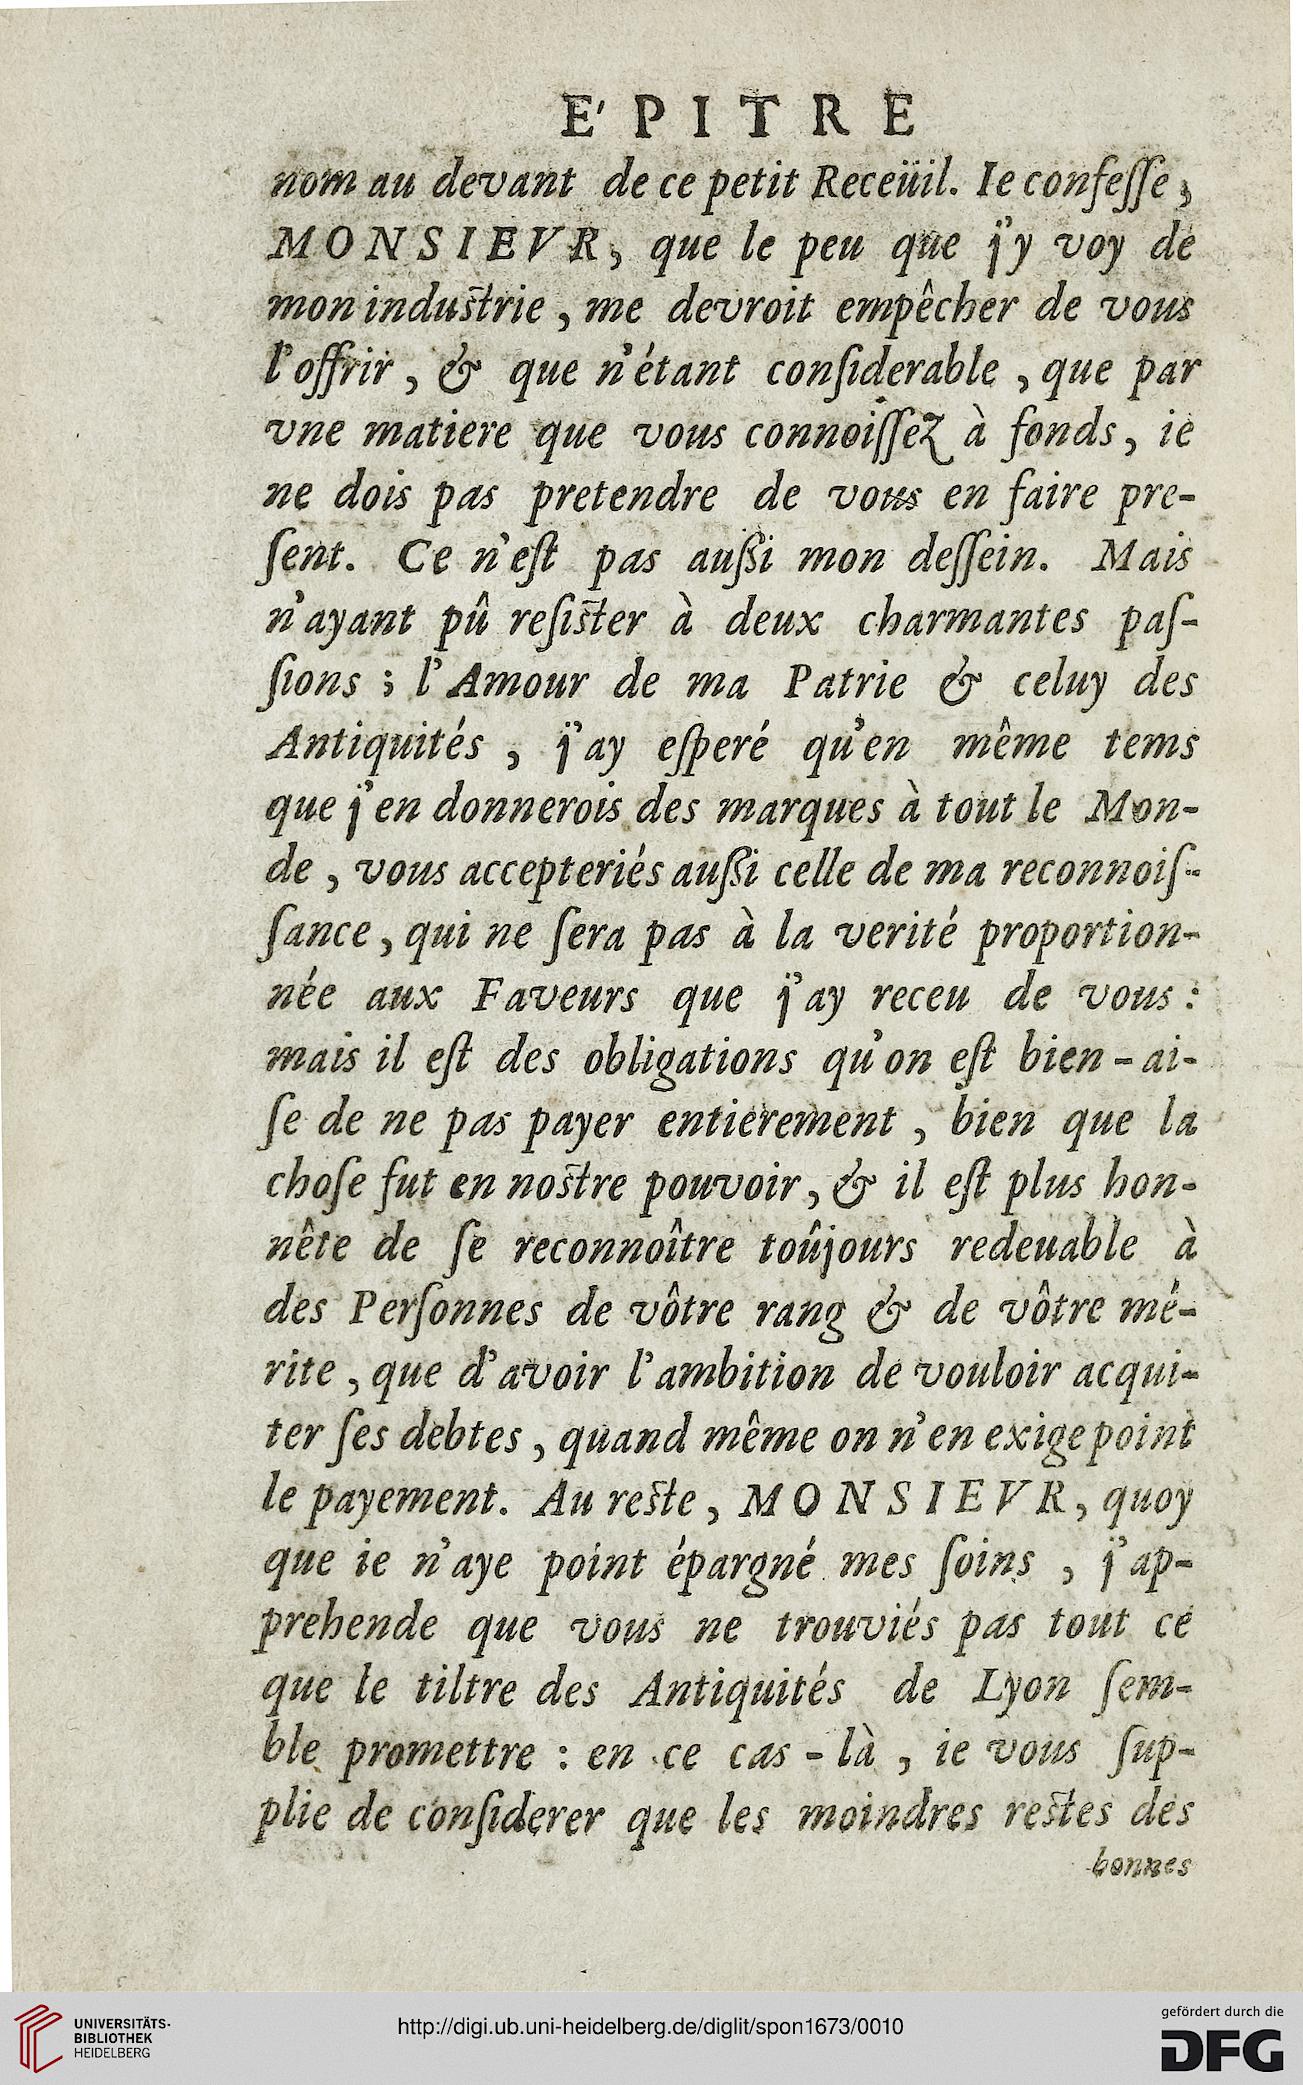 E' P I T R E
nom au devant de ce petit Receüil. Ie confeſſe,
MONSIEVR, que le peu que j'y voy de
mon induſtrie, me devroit empêcher de vous
l'offrir, & que n'étant conſiderable, que par
vne matiere que vous connoiſſez à fonds, ie
ne dois pas pretendre de vous en faire pre-
ſent. Ce n'eſt pas auſſi mon deſſein. Mais
n'ayant pû reſiſter à deux charmantes paſ-
ſions ; l'Amour de ma Patrie & celuy des
Antiquités, j'ay eſperé qu'en même tems
que j'en donnerois des marques à tout le Mon-
de, vous accepteriés auſſi celle de ma reconnoiſ-
ſance, qui ne ſera pas à la verité proportion-
née aux Faveurs que j'ay receu de vous :
mais il eſt des obligations qu'on eſt bien-ai-
ſe de ne pas payer entierement, bien que la
choſe fut en noſtre pouvoir, & il eſt plus hon-
nête de ſe reconnoître toûjours redeuable à
des Perſonnes de vôtre rang & de vôtre mé-
rite, que d'avoir l'ambition de vouloir acqui-
ter ſes debtes, quand même on n'en exige point
le payement. Au reſte, MONSIEVR, quoy
que ie n'aye point épargné mes ſoins, j'ap-
prehende que vous ne trouviés pas tout ce
que le tiltre des Antiquités de Lyon ſem-
ble promettre : en ce cas-là, ie vous ſup-
plie de conſiderer que les moindres reſtes des
bonnes
UNIVERSITÄTS-
BIBLIOTHEK
HEIDELBERG
http://digi.ub.uni-heidelberg.de/diglit/spon1673/0010
gefördert durch die
DFG